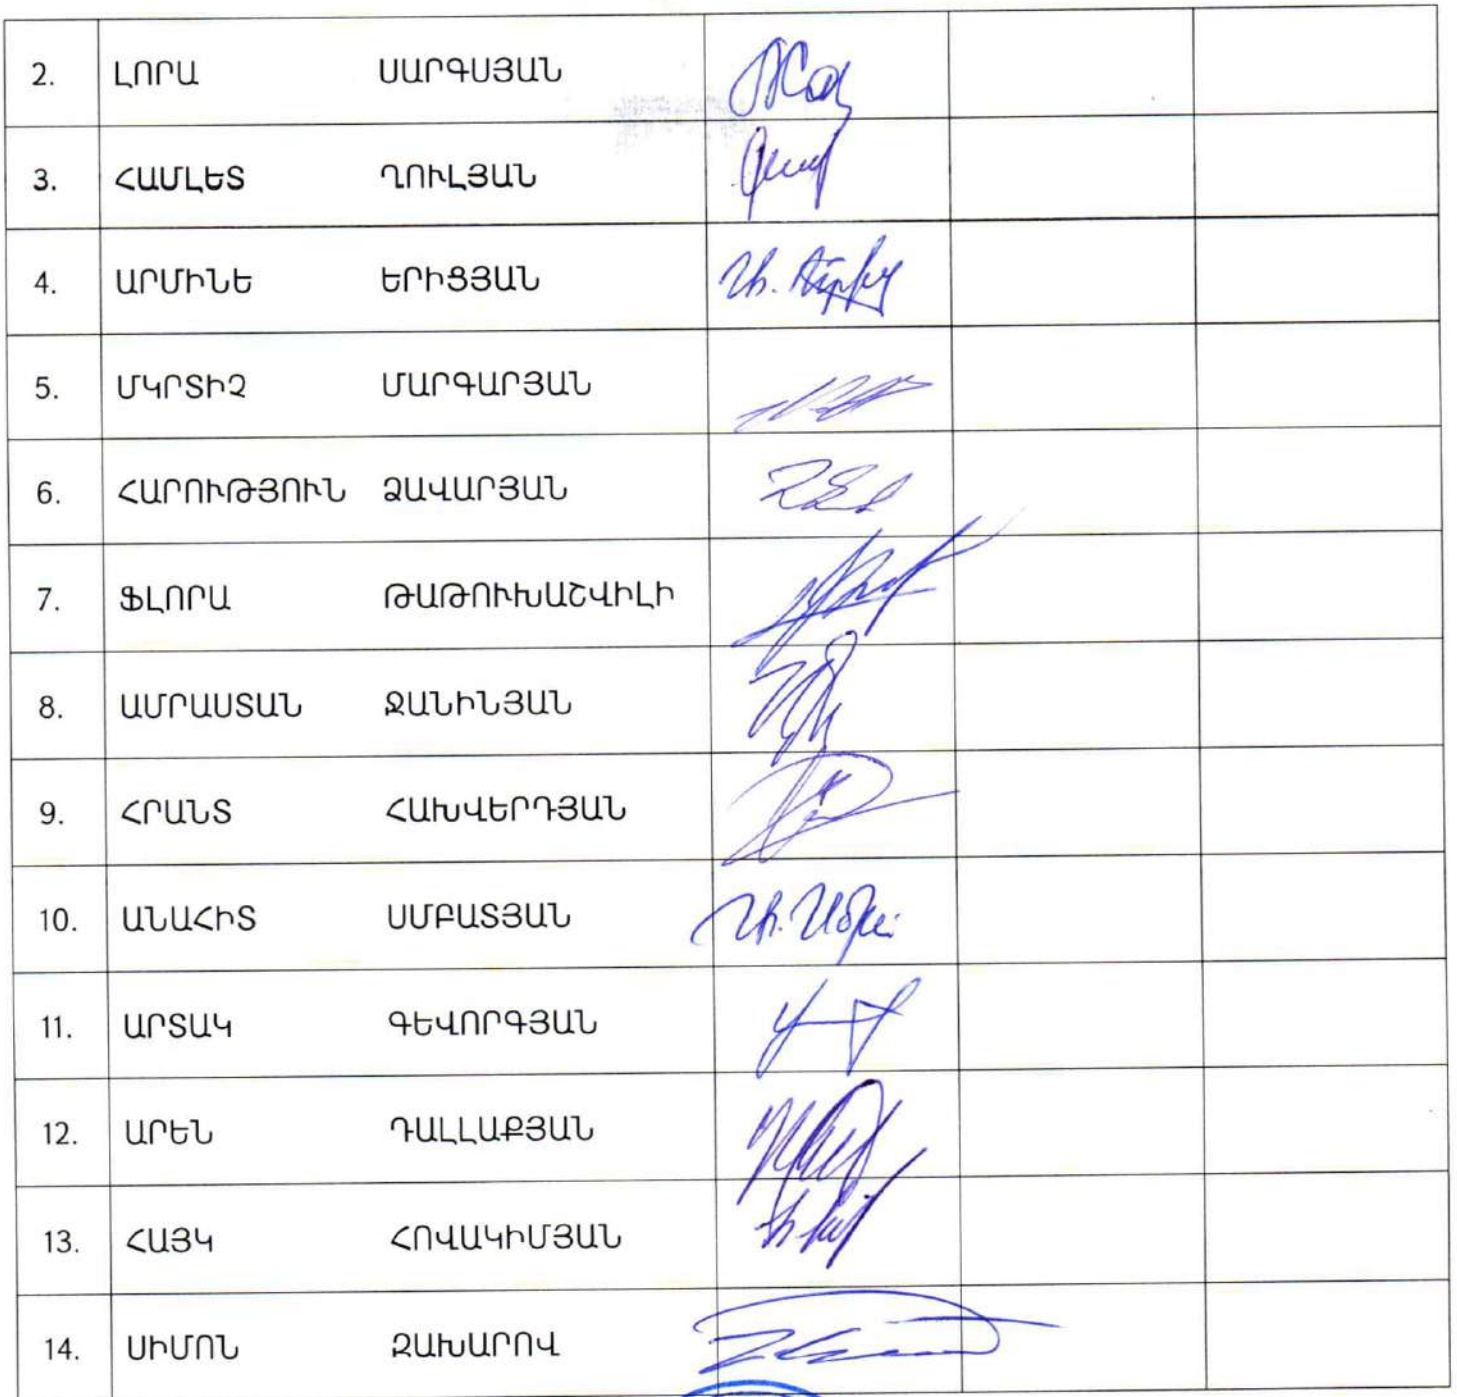 2. ԼՈՐԱ ՍԱՐԳՍՅԱՆ
3. ՀԱՄԼԵՏ ՂՈՒԼՅԱՆ
4. ԱՐՄԻՆԵ ԵՐԻՑՅԱՆ
5. ՄԿՐՏԻՉ ՄԱՐԳԱՐՅԱՆ
6. ՀԱՐՈՒԹՅՈՒՆ ՁԱՎԱՐՅԱՆ
7. ՖԼՈՐԱ ԹԱԹՈՒԽԱՇՎԻԼԻ
8. ԱՄՐԱՍՏԱՆ ՋԱՆԻՆՅԱՆ
9. ՀՐԱՆՏ ՀԱԽՎԵՐԴՅԱՆ
10. ԱՆԱՀԻՏ ՍՄԲԱՏՅԱՆ
11. ԱՐՏԱԿ ԳԵՎՈՐԳՅԱՆ
12. ԱՐԵՆ ԴԱԼԼԱՔՅԱՆ
13. ՀԱՅԿ ՀՈՎԱԿԻՄՅԱՆ
14. ՍԻՄՈՆ ԶԱԽԱՐՈՎ